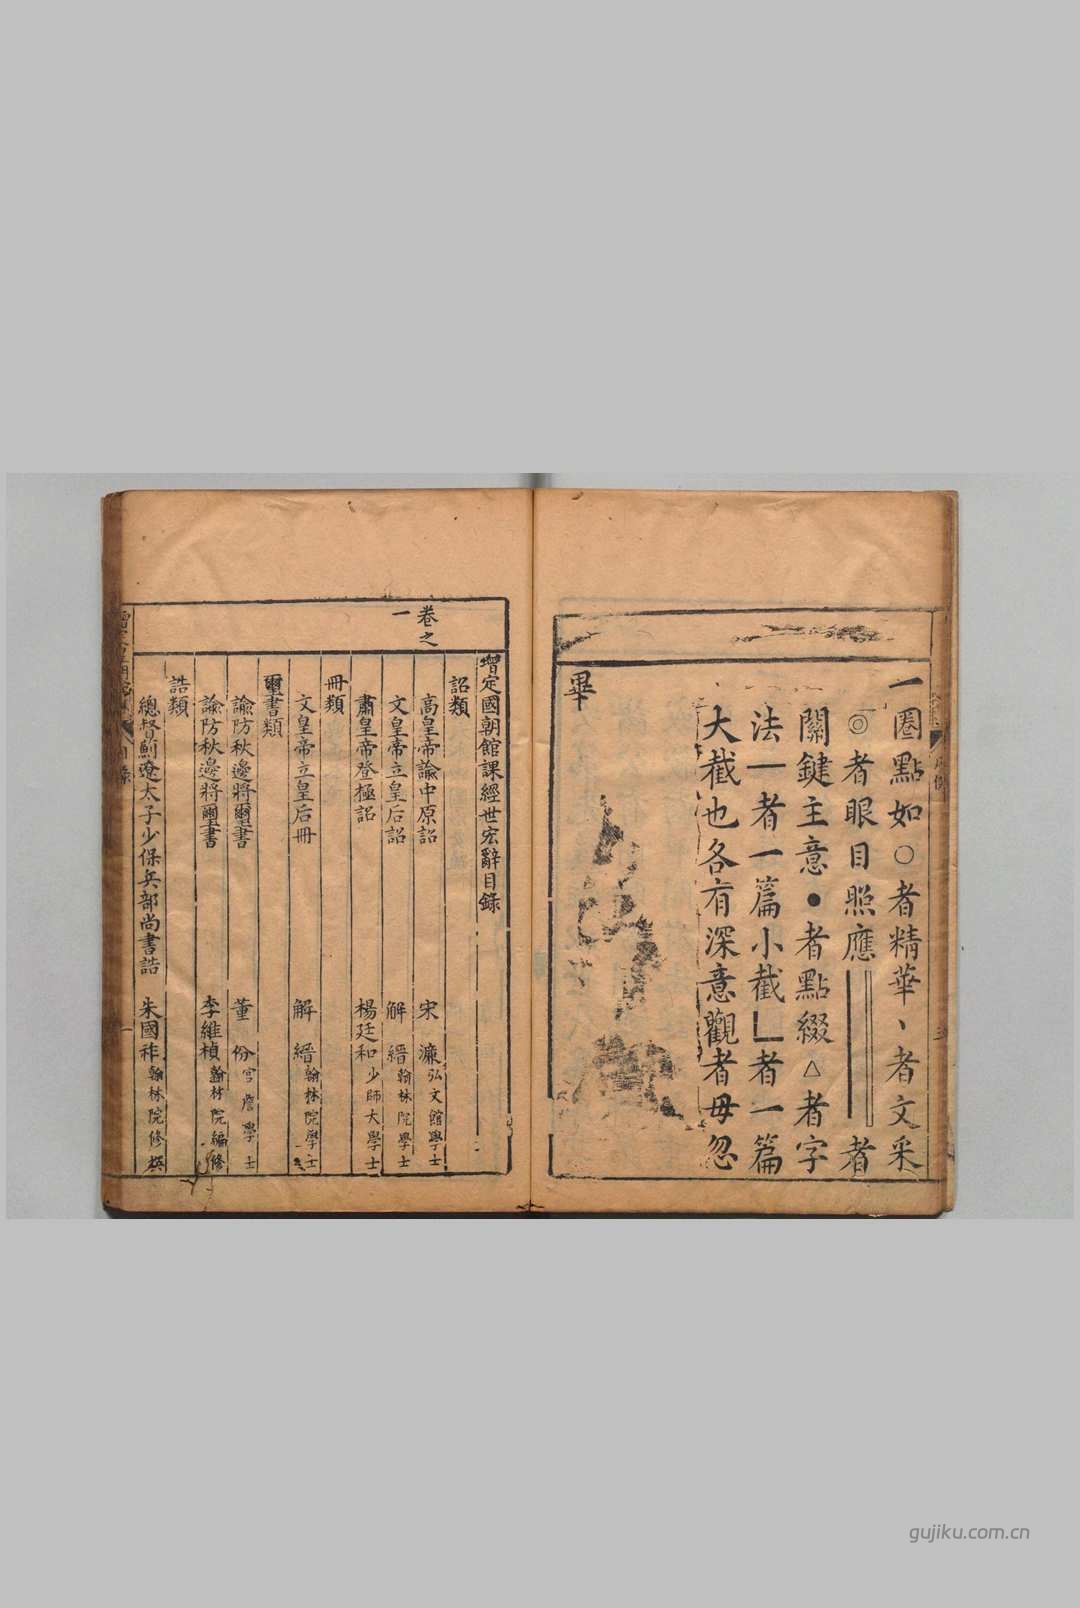 一圈點如○者精華、者文采
◎者眼目照應║者
關鍵主意●者點綴△者字
法一者一篇小截乚者一篇
大截也各有深意觀者毋忽
畢
卷之
一
增定國朝館課經世宏辭目錄
詔類
高皇帝諭中原詔 宋濂弘文館學士
文皇帝立皇后詔 解縉翰林院學士
肅皇帝登極詔 楊廷和少師大學士
冊類
文皇帝立皇后冊 解縉翰林院學士
璽書類
諭防秋邊將璽書 董份宮詹學士
諭防秋邊將璽書 李維楨翰林院編修
誥類
總督薊遼太子少保兵部尚書誥 朱國祚翰林院修撰
目錄
一
gujiku.com.cn